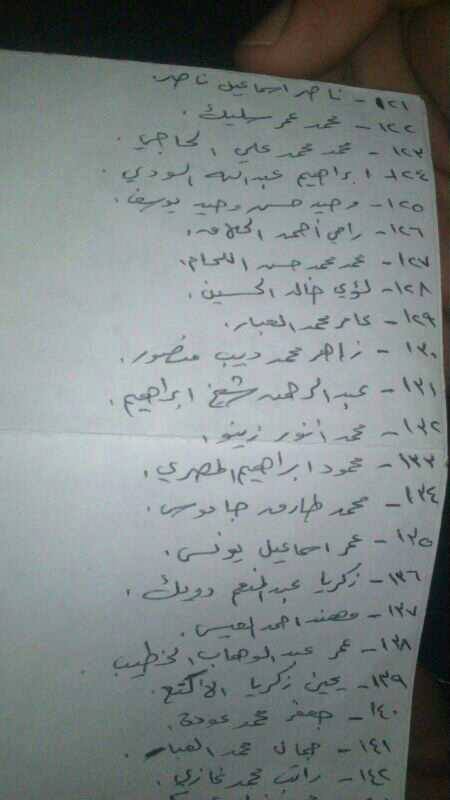 ١٢١- ناصر اسماعيل ناصر.
١٢٢- محمد عمر سليك.
١٢٣- محمد محمد علي الحاجي.
١٢٤- ابراهيم عبدالله السودي.
١٢٥- وحيد حسن وحيد يوسف.
١٢٦- رامي أحمد الحلاق.
١٢٧- محمد محمد حسن اللحام.
١٢٨- لؤي خالد الحسين.
١٢٩- عامر محمد العبار.
١٣٠- زاهر محمد ديب منصور.
١٣١- عبد الرحمن شيخ ابراهيم.
١٣٢- محمد أنور زينو.
١٣٣- محمود ابراهيم المصري.
١٣٤- محمد طارق جاموس.
١٣٥- عمر اسماعيل يونس.
١٣٦- زكريا عبد المنعم دوبك.
١٣٧- مهند احمد العيسى.
١٣٨- عمر عبد الوهاب الخطيب.
١٣٩- يحيى زكريا الأكتع.
١٤٠- جعفر محمد عودة.
١٤١- جمال محمد
١٤٢- راتب محمد غازي.